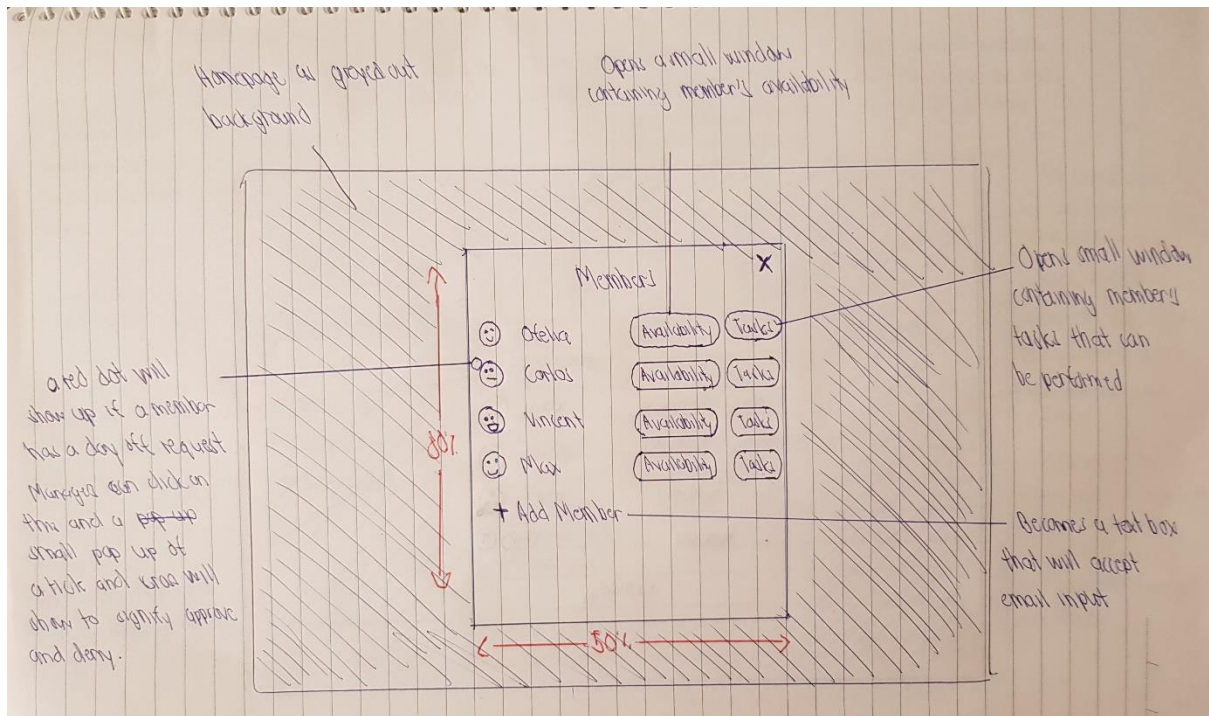 Homepage as greyed out
background
Opens a small window
containing member's availability
Members X
Ofelia Availability Tasks
Carlos Availability Tasks
Vincent Availability Tasks
Max Availability Tasks
+ Add Member
80%
50%
Opens small window
containing member's
tasks that can
be performed
Becomes a text box
that will accept
email input
a red dot will
show up if a member
has a day off request
Manager can click on
this and a pop up
small pop up of
a tick and cross will
show to signify approve
and deny.